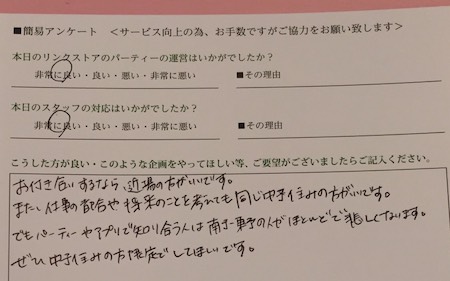 ■簡易アンケート ＜サービス向上の為、お手数ですがご協力をお願い致します＞
本日のリンクストアのパーティーの運営はいかがでしたか？
非常に良い・良い・悪い・非常に悪い ■その理由
本日のスタッフの対応はいかがでしたか？
非常に良い・良い・悪い・非常に悪い ■その理由
こうした方が良い・このような企画をやってほしい等、ご要望がございましたらご記入ください。
お付き合いするなら、近場の方がいいです。
また、仕事の都合や将来のことを考えても同じ中予住みの方がいいです。
でもパーティーやアプリで知り合う人は南予・東予の人がほとんどで悲しくなります。
ぜひ中予住みの方限定でしてほしいです。